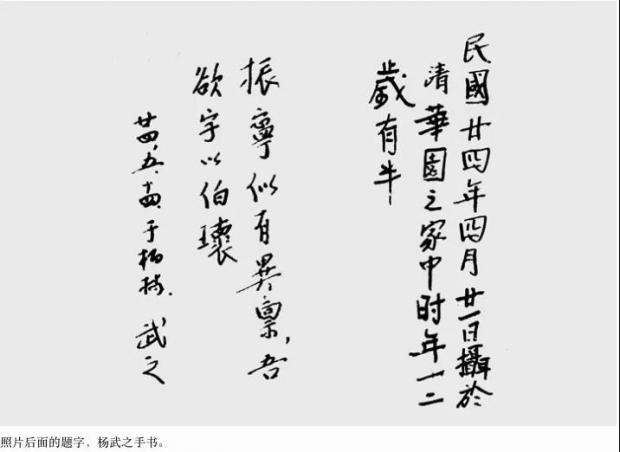 民國廿四年四月廿一日攝於
清華園之家中时年十二
歲有半
振寧似有異稟，吾
欲字以伯瓌
廿四、五、十四于柏林. 武之
照片后面的题字，杨武之手书。